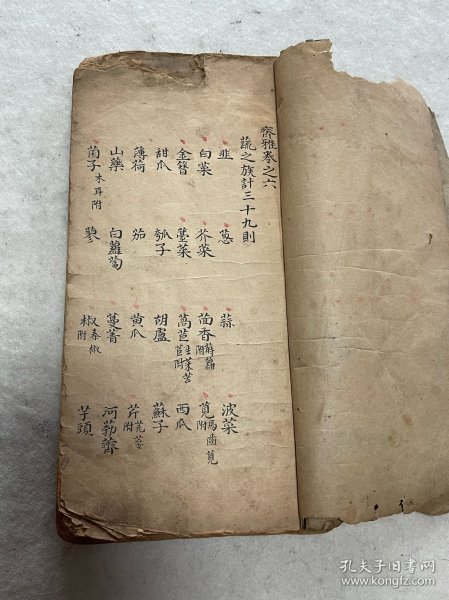 齊雅卷之六
蔬之族計三十九則
韭 蔥 蒜 波菜
白菜 芥菜 茴香 蒔蘿附 莧 馬齒莧附
金簪 薹菜 萵苣 生菜苦苣附 西瓜
甜瓜 瓠子 胡盧 蘇子
薄荷 茄 黄瓜 芹
山藥 白蘿蔔 蔓菁 河勒薺
菌子 木耳附 蓼 椒 附 芋頭
孔夫子旧书网
www.kongfz.com